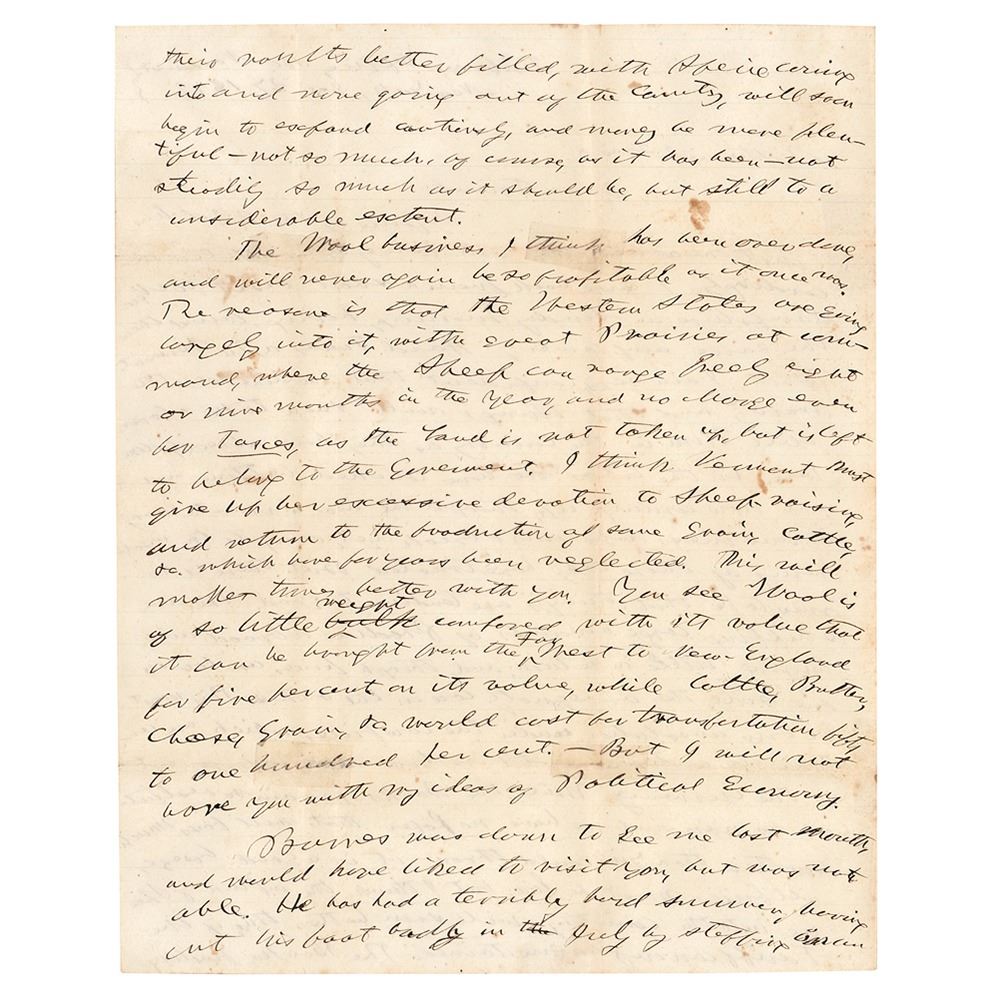 their vaults better filled, with Specie coming
into and none going out of the Country, will soon
begin to expand cautiously, and money be more plen-
tiful – not so much, of course, as it has been – not
steadily so much as it should be, but still to a
considerable extent.
The Wool business I think has been over done,
and will never again be so profitable as it once was.
The reason is that the Western States are going
largely into it, with great Prairies at com-
mand, where the Sheep can range freely eight
or nine months in the year, and no charge even
for Taxes, as the land is not taken up, but is left
to belong to the Government. I think Vermont must
give up her excessive devotion to Sheep-raising,
and return to the production of some Grain, Cattle,
&c. which have for years been neglected. This will
make times better with you. You see Wool is
of so little bulk weight compared with its value that
it can be brought from the Far West to New-England
for five per cent on its value, while Cattle, Butter,
Cheese, Grain, &c. would cost for transportation fifty
to one hundred per cent. – But I will not
bore you with my ideas of Political Economy.
Barnes was down to see me last month,
and would have liked to visit you, but was not
able. He has had a terribly hard summer, having
cut his foot badly in the July by stepping on an